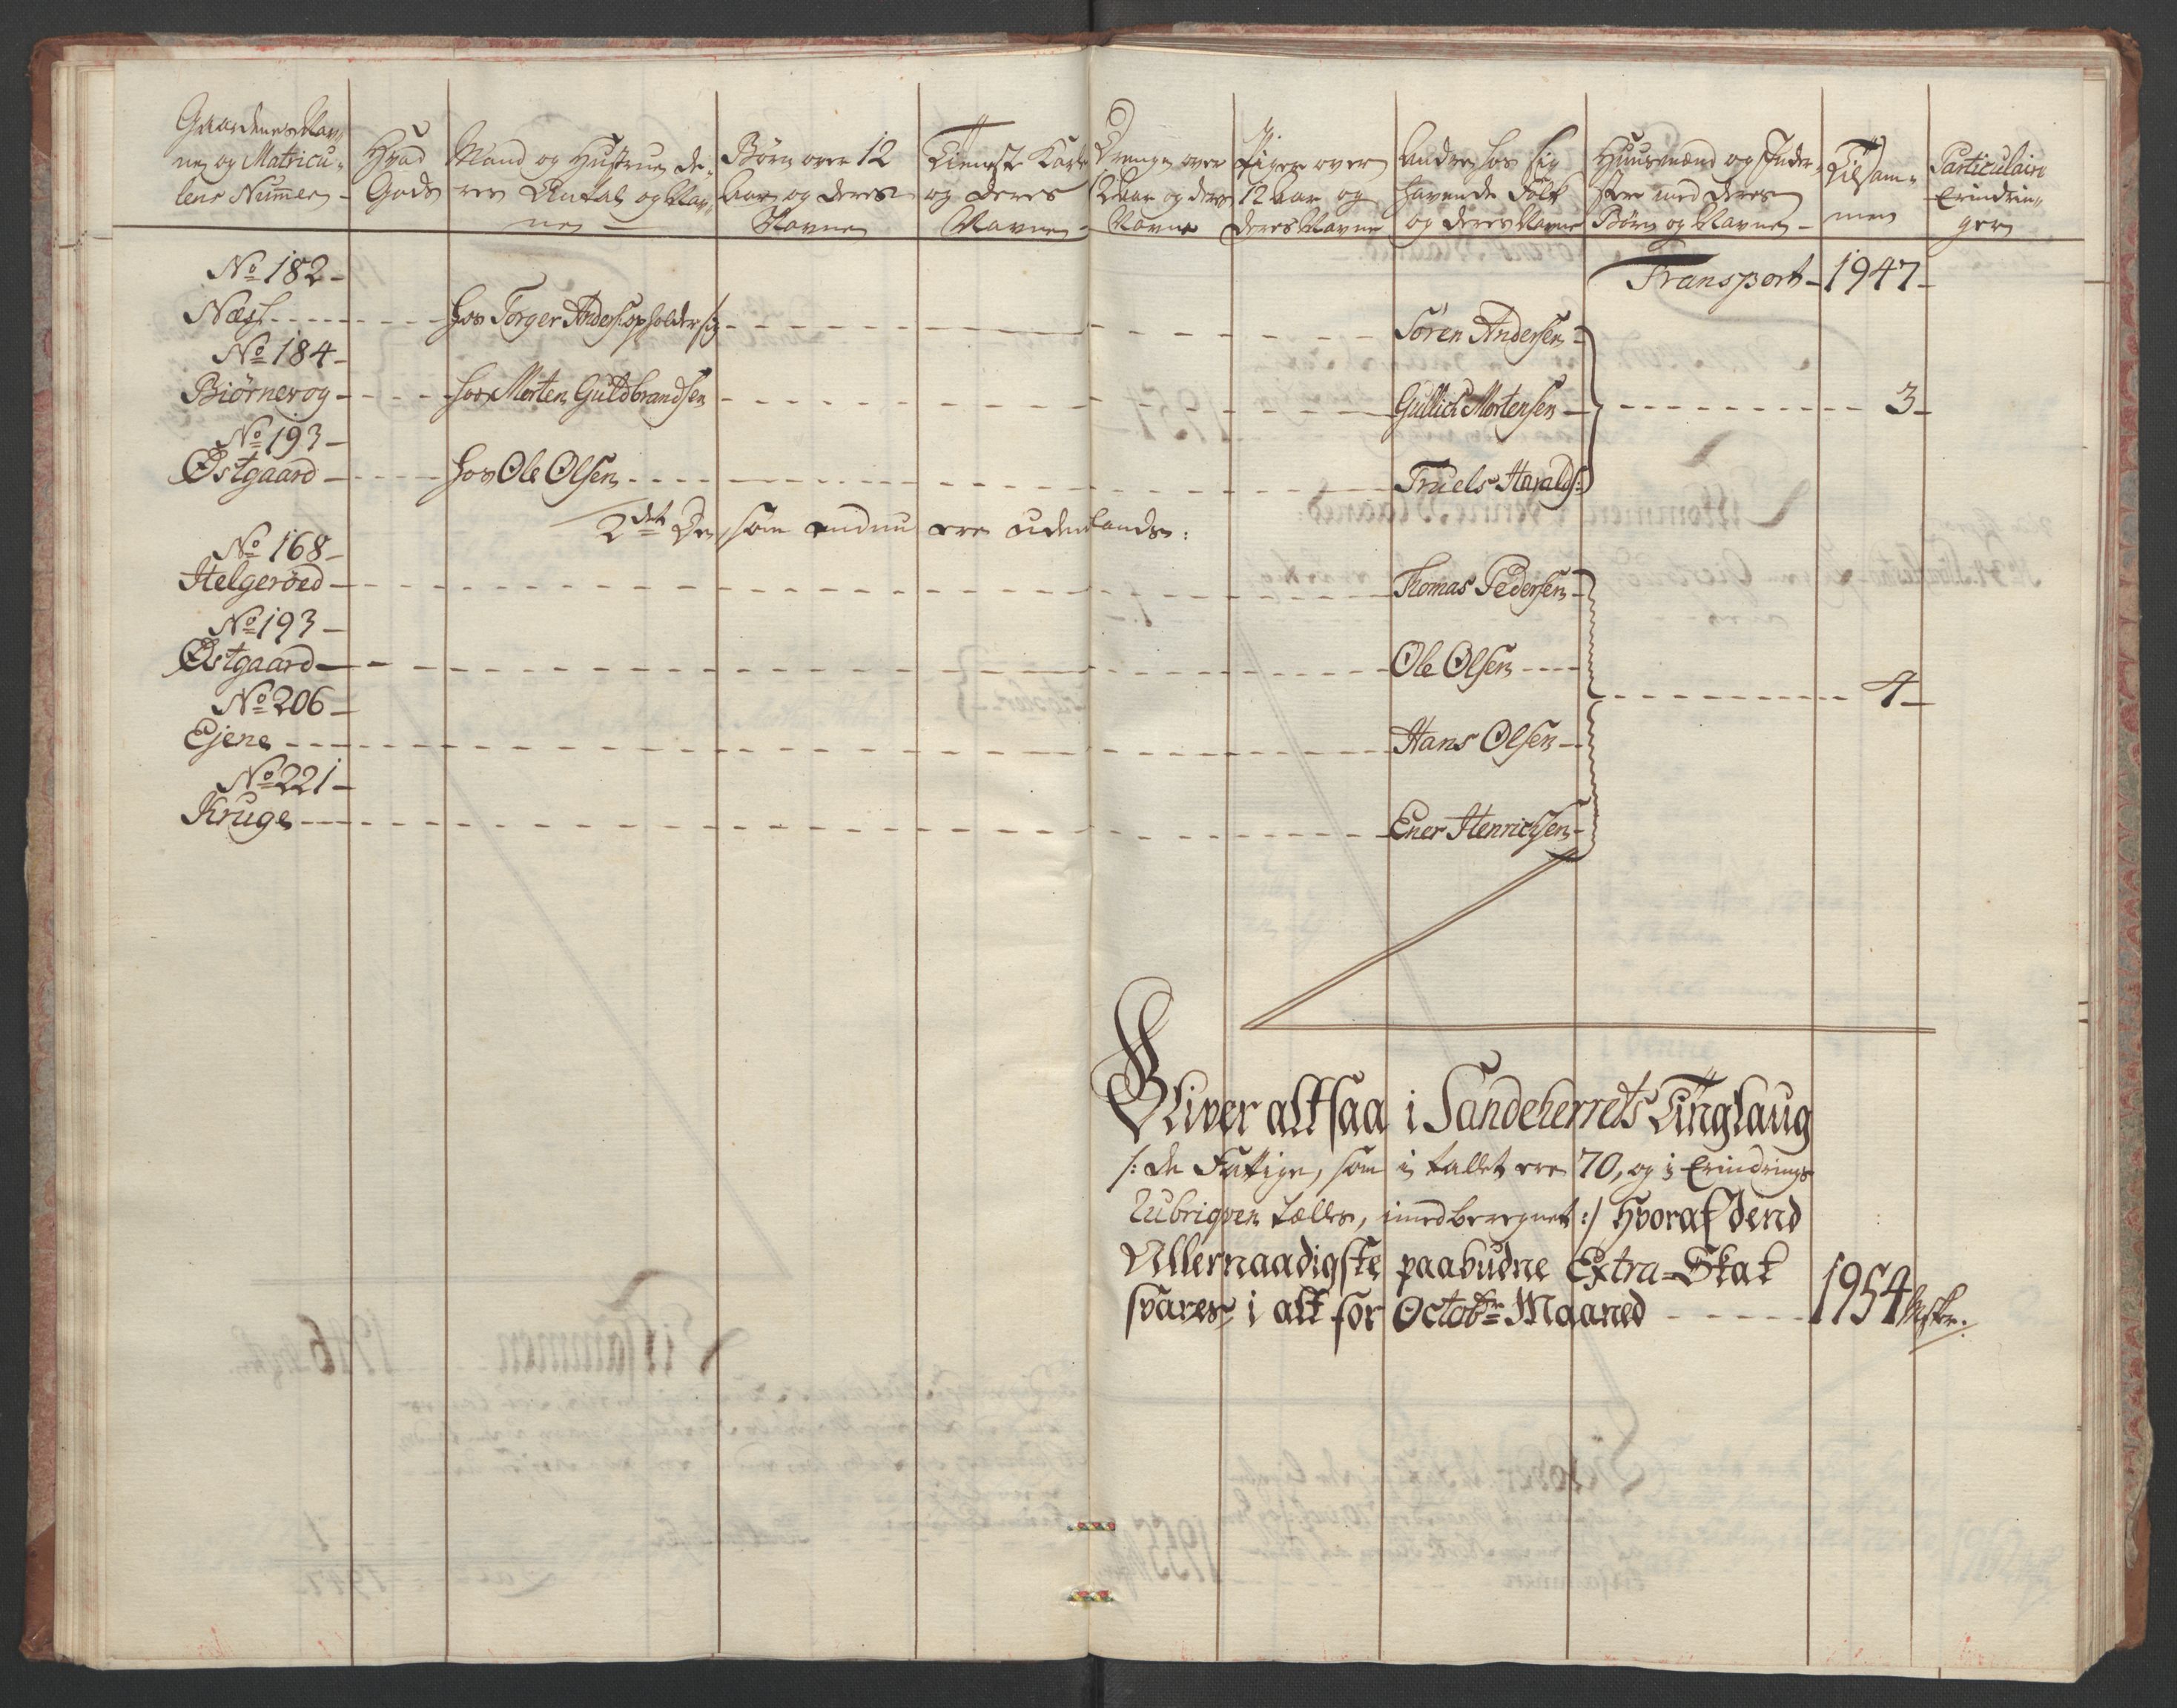 Gaardenes Nav,
ne og Matricu-
lens Nummer -
Hvad
Gods
Mand og Hustrue de-
res Antal og Nav-
ne
Børn over 12
Aar og deres
Navne
Tienest Karle
og deres
Navne -
Drenge over
12 Aar og deres
Navne
Piger over
12 Aar og
deres Navne
Andre hos sig
havende Folk
og deres Navne
Huusmænd og Inder-
ster med deres
Børn og Navne -
Tilsam-
men
Particulaire
Erindrin-
ger
Transport - 1947 -
No 182 -
Næs - - - - hos Torger Anders: opholder sig - - - Søren Andersen -
No 184 -
Biørnevog - - - - hos Morten Guldbrandsen - - - Gullich Mortensen - - - - 3 -
No 193 -
Østgaard - - - - hos Ole Olsen - - - Truels Haralds:
2det De, som endnu ere udenlands:
No 168 -
Helgerøed - - - Thomas Pedersen -
No 193 -
Østgaard - - - Ole Olsen - - - 4 -
No 206 -
Ejene - - - Hans Olsen -
No 221 -
Kruge - - - Ener Henrichsen -
Bliver altsaa i Sandeherrets Tinglaug
/: de Fattige, som i tallet ere 70, og i Erindrings
Rubriqven tælles, imedberegnet :/ hvoraf dend
Allernaadigste paabudne Extra-Skat
svares, i alt for Octobr Maaned - - - - 1954 Msker.